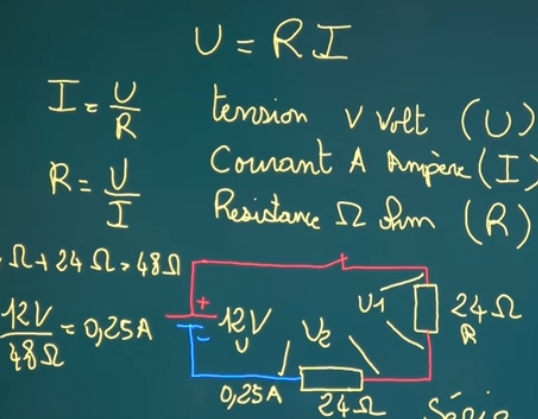 U = R I
I = U/R
tension V Volt (U)
R = U/I
Courant A Ampère (I)
Resistance Ω Ohm (R)
Ω + 24 Ω = 48 Ω
12V/48Ω = 0,25A
+
-
12V
U
U1
24Ω
R
U2
0,25A
24Ω
Série